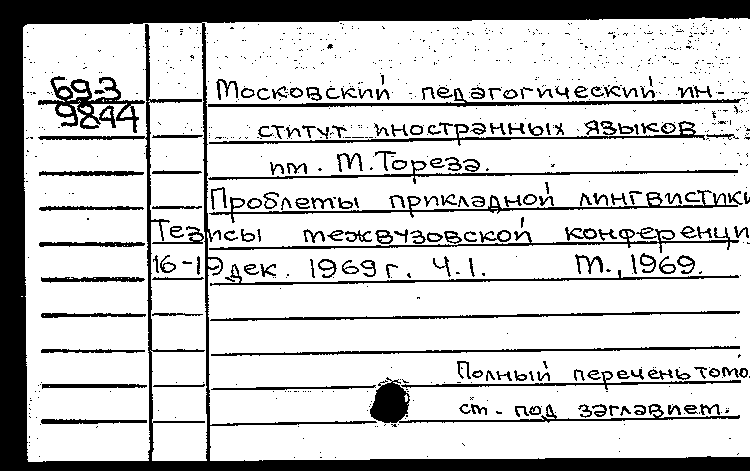 69-3
9844
Московский педагогический ин-
ститут иностранных языков
им. М.Тореза.
Проблемы прикладной лингвистики
Тезисы межвузовской конференци
16-19 дек. 1969 г. Ч.1. М., 1969.
Полный перечень томо
см. под заглавием.